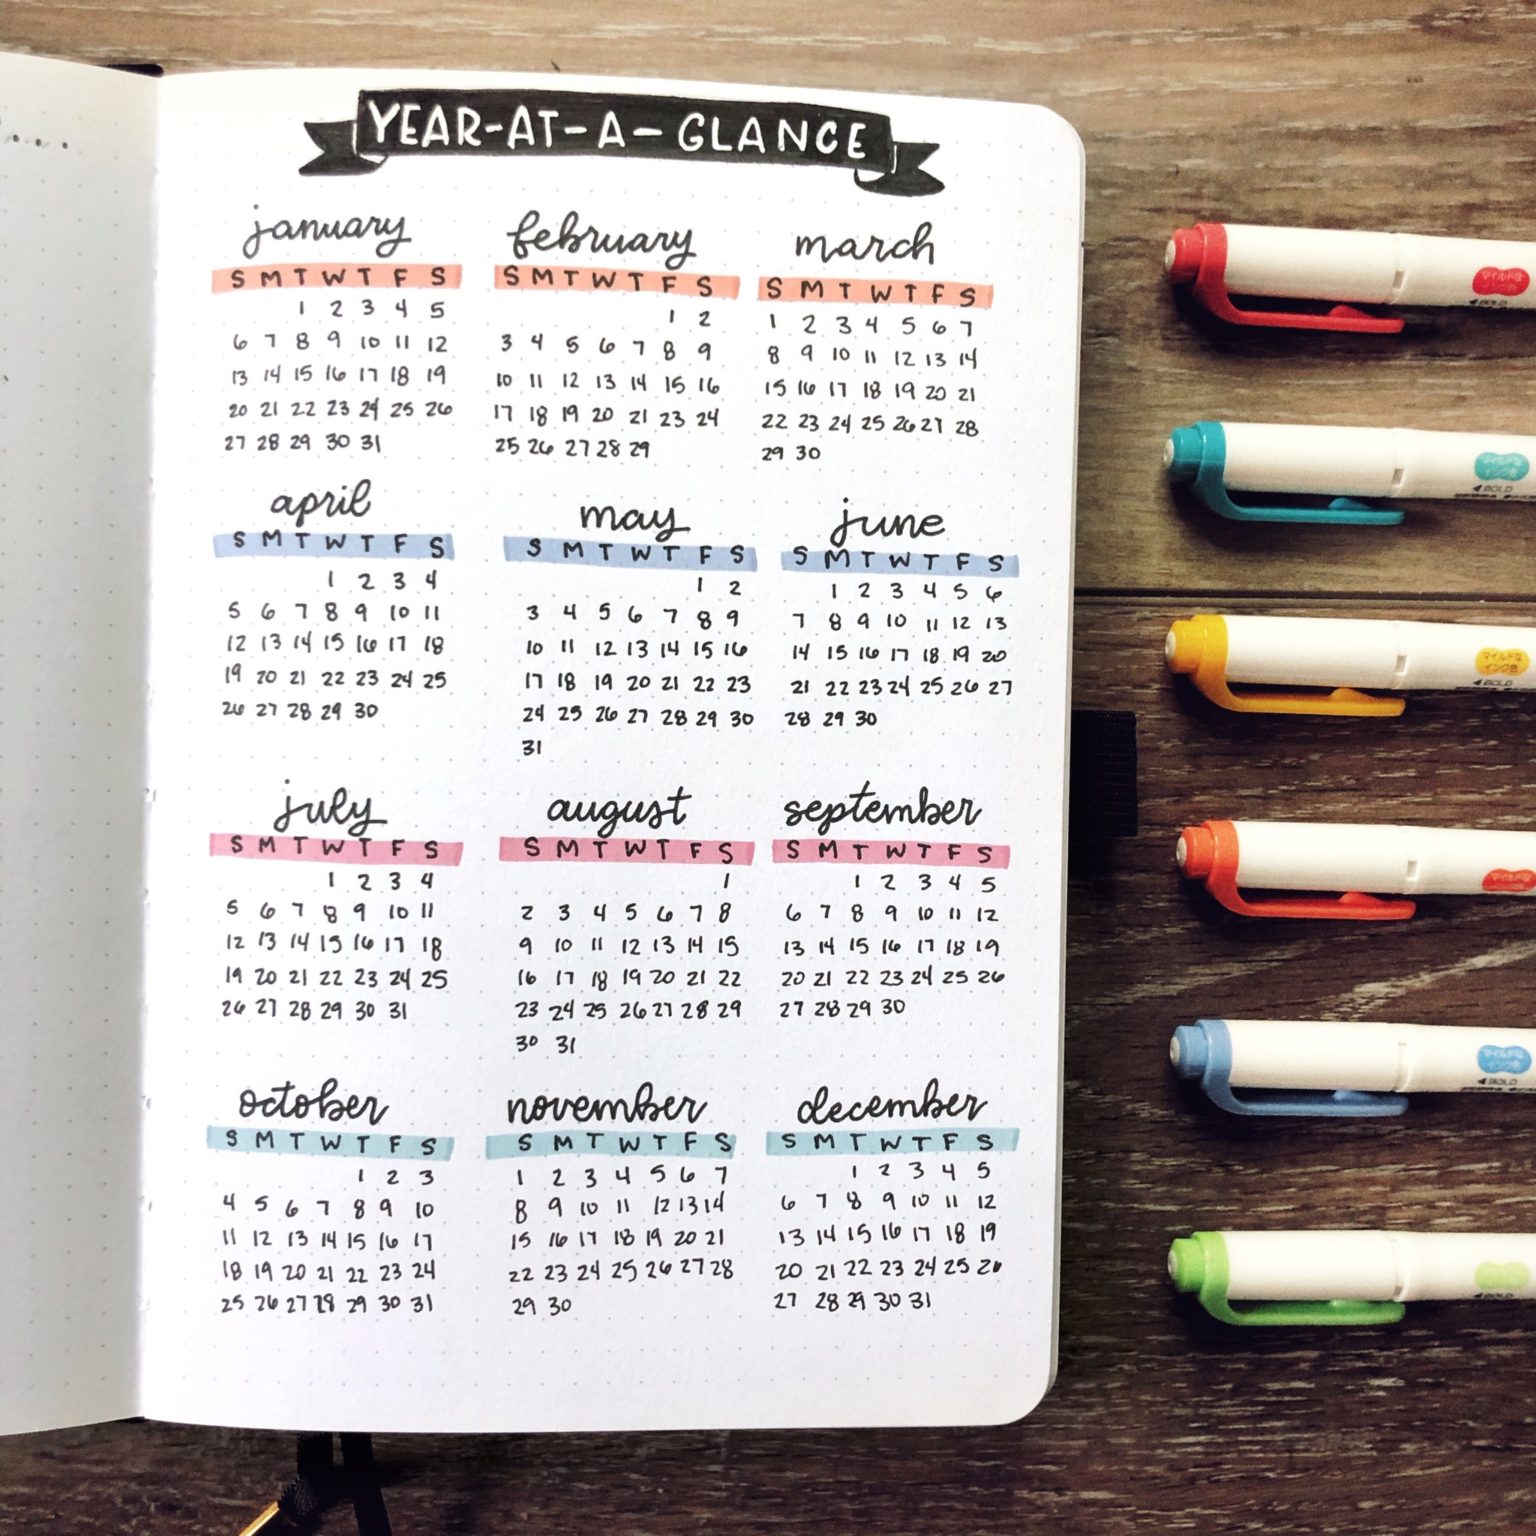 YEAR-AT-A-GLANCE
january
S M T W T F S
1 2 3 4 5
6 7 8 9 10 11 12
13 14 15 16 17 18 19
20 21 22 23 24 25 26
27 28 29 30 31
february
S M T W T F S
1 2
3 4 5 6 7 8 9
10 11 12 13 14 15 16
17 18 19 20 21 23 24
25 26 27 28 29
march
S M T W T F S
1 2 3 4 5 6 7
8 9 10 11 12 13 14
15 16 17 18 19 20 21
22 23 24 25 26 27 28
29 30
april
S M T W T F S
1 2 3 4
5 6 7 8 9 10 11
12 13 14 15 16 17 18
19 20 21 22 23 24 25
26 27 28 29 30
may
S M T W T F S
1 2
3 4 5 6 7 8 9
10 11 12 13 14 15 16
17 18 19 20 21 22 23
24 25 26 27 28 29 30
31
june
S M T W T F S
1 2 3 4 5 6
7 8 9 10 11 12 13
14 15 16 17 18 19 20
21 22 23 24 25 26 27
28 29 30
july
S M T W T F S
1 2 3 4
5 6 7 8 9 10 11
12 13 14 15 16 17 18
19 20 21 22 23 24 25
26 27 28 29 30 31
august
S M T W T F S
1
2 3 4 5 6 7 8
9 10 11 12 13 14 15
16 17 18 19 20 21 22
23 24 25 26 27 28 29
30 31
september
S M T W T F S
1 2 3 4 5
6 7 8 9 10 11 12
13 14 15 16 17 18 19
20 21 22 23 24 25 26
27 28 29 30
october
S M T W T F S
1 2 3
4 5 6 7 8 9 10
11 12 13 14 15 16 17
18 19 20 21 22 23 24
25 26 27 28 29 30 31
november
S M T W T F S
1 2 3 4 5 6 7
8 9 10 11 12 13 14
15 16 17 18 19 20 21
22 23 24 25 26 27 28
29 30
december
S M T W T F S
1 2 3 4 5
6 7 8 9 10 11 12
13 14 15 16 17 18 19
20 21 22 23 24 25 26
27 28 29 30 31
マイルドな
インク色
BOLD
マイルドな
インク色
BOLD
マイルドな
インク色
BOLD
マイルドな
マイルドな
インク色
BOLD